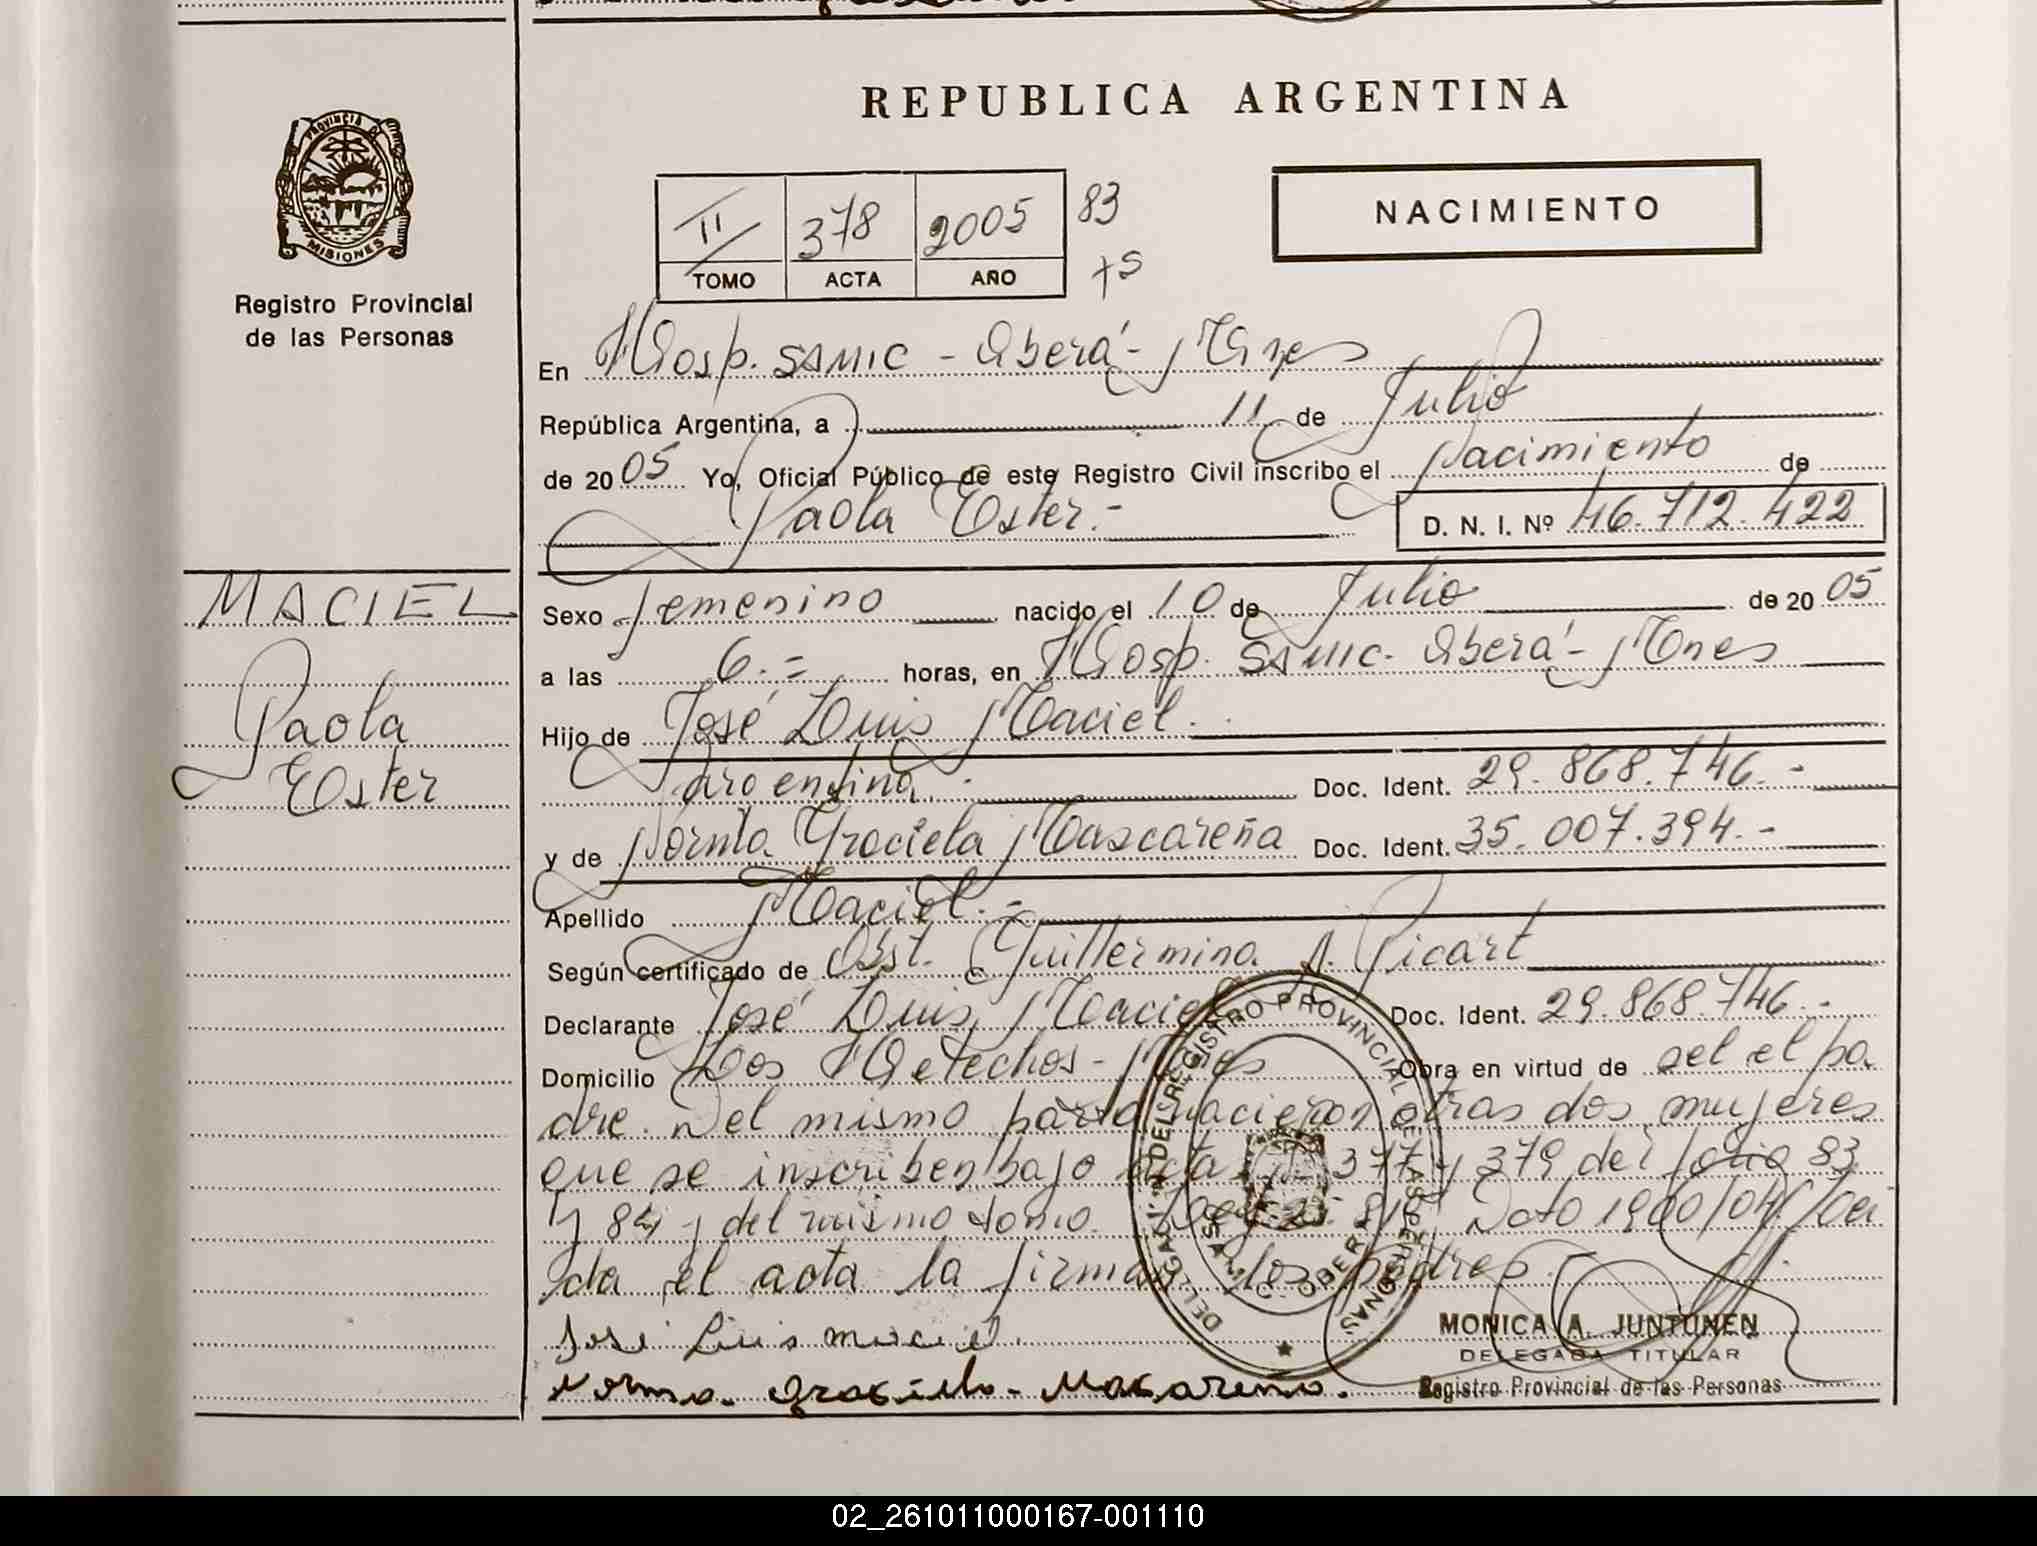 REPUBLICA ARGENTINA
PROVINCIA DE
MISIONES
Registro Provincial
de las Personas
II 378 2005 83
TOMO ACTA AÑO
NACIMIENTO
En Hosp. SAMIC - Oberá - Mnes
República Argentina, a 11 de Julio
de 2005 Yo, Oficial Público de este Registro Civil inscribo el Nacimiento de
Paola Ester.- D. N. I. Nº 46.712.422
MACIEL
Paola
Ester
Sexo femenino nacido el 10 de Julio de 2005
a las 6.= horas, en Hosp. SAMIC - Oberá - Mnes
Hijo de José Luis Maciel.
argentina.- Doc. Ident. 29.868.746.-
y de Norma Graciela Mascareña Doc. Ident. 35.007.394.-
Apellido Maciel.-
Según certificado de Obst. Guillermina A. Picart
Declarante José Luis Maciel Doc. Ident. 29.868.746.-
Domicilio Los Helechos - Mnes Obra en virtud de ser el pa
dre. Del mismo parto nacieron otras dos mujeres
que se inscriben bajo acta 377 y 379 del folio 83
y 84 del mismo tomo. Dcto 1900/04. Leí
da el acta la firman los padres.
José Luis maciel.
Norma Grasiela Mascareña.
DELEGACION DEL REGISTRO PROVINCIAL DE LAS PERSONAS
OBERA
MONICA A. JUNTUNEN
DELEGADA TITULAR
Registro Provincial de las Personas
02_261011000167-001110